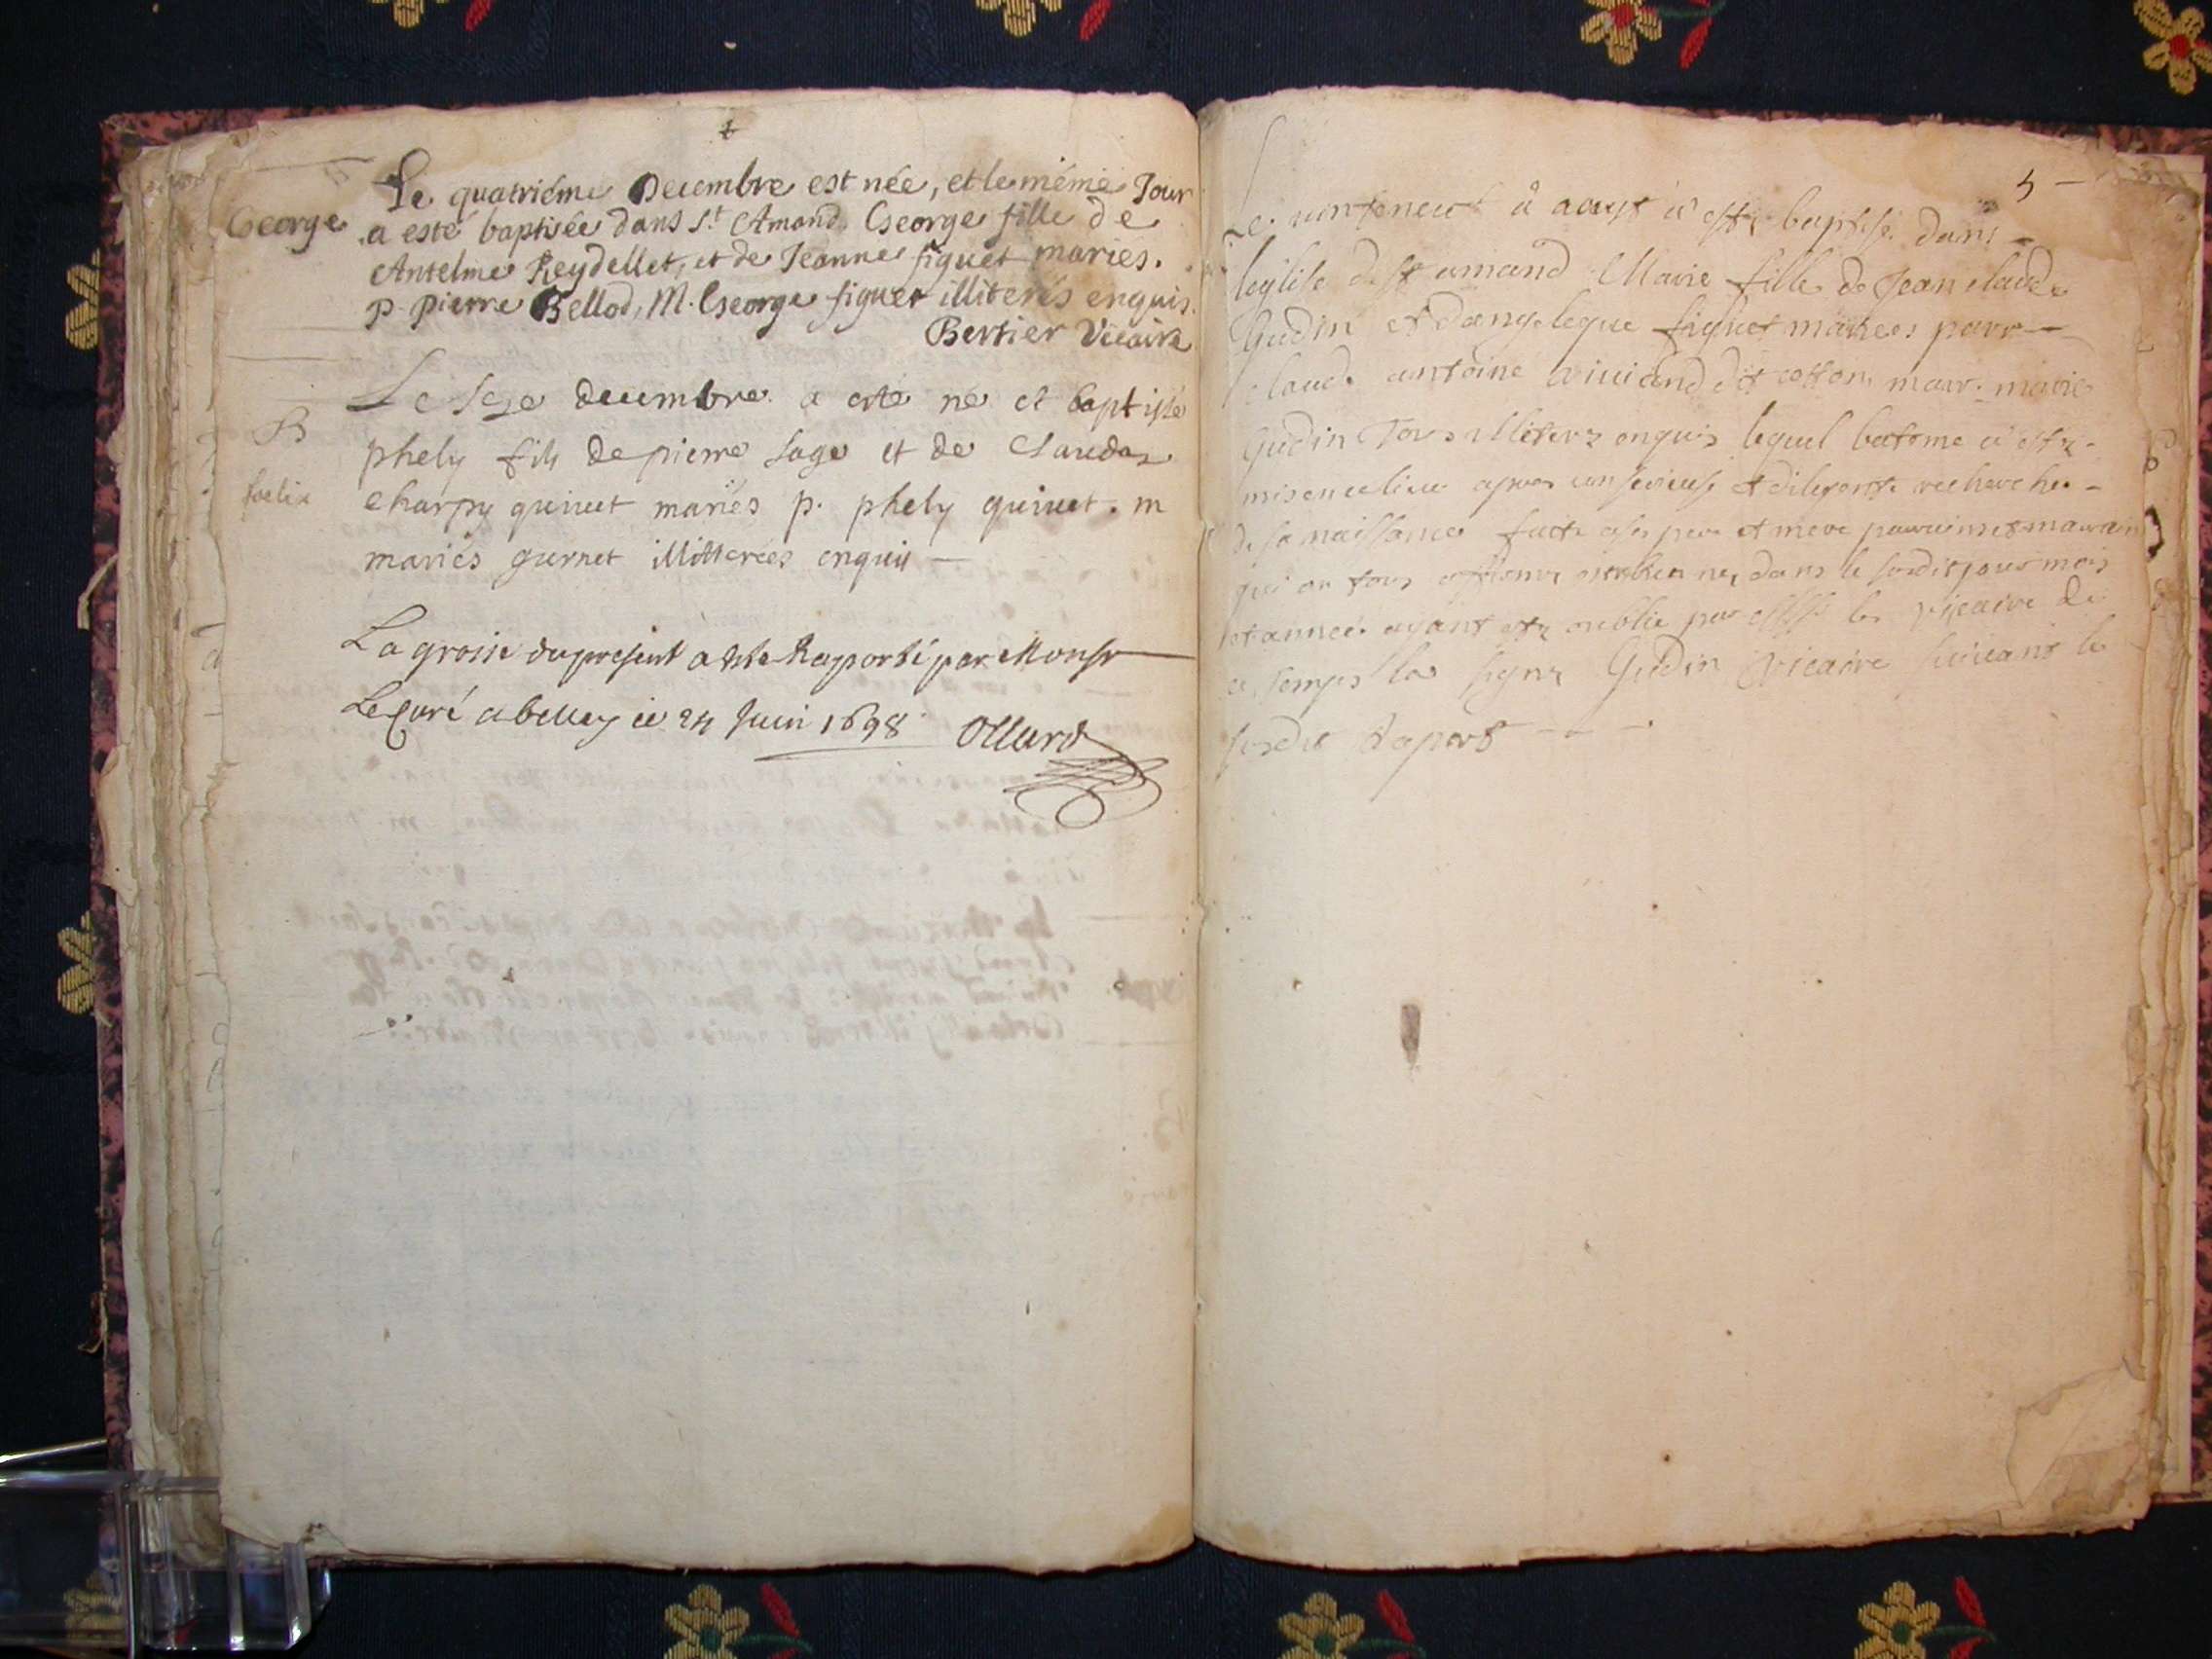 Le quatriéme Decembre est née, et le méme Jour
George
a esté baptisée dans St Amand, George fille de
Antelme Reydellet, et de Jeanne figuet mariés.
p. pierre Bellod, M. George figuet illiterés enquis.
Bertier Vicaire
Le seze decembre a esté né et baptisé
B
phely fils de pierre sage et de Claudaz
foelix
charpy quinet mariés p. phely quinet . m
mariés gurnet illitterées enquis
La grosse du present a este Raporté par Monsr
Le Curé a belley ce 24 Juin 1698 Ollard
5
Le vinteneuf a aoust a este baptisé dans
leglise de st amand Marie fille de Jean claude
Gudin et dangeleque figuet mariees parr
claude antoine viuiand dit cotton marr. marie
Gudin Tous illiterz enquis lequel batome a este
mis en ce lieu apres un serieuse et diligente recherche
de sa naissance faite a ses pere et mere parrain et marrain
qui on tous dans le susdit jour mois
et année ayant este oublié par le vicaire de
ce temps la signe Gudin vicaire suivant le
susdit Raport